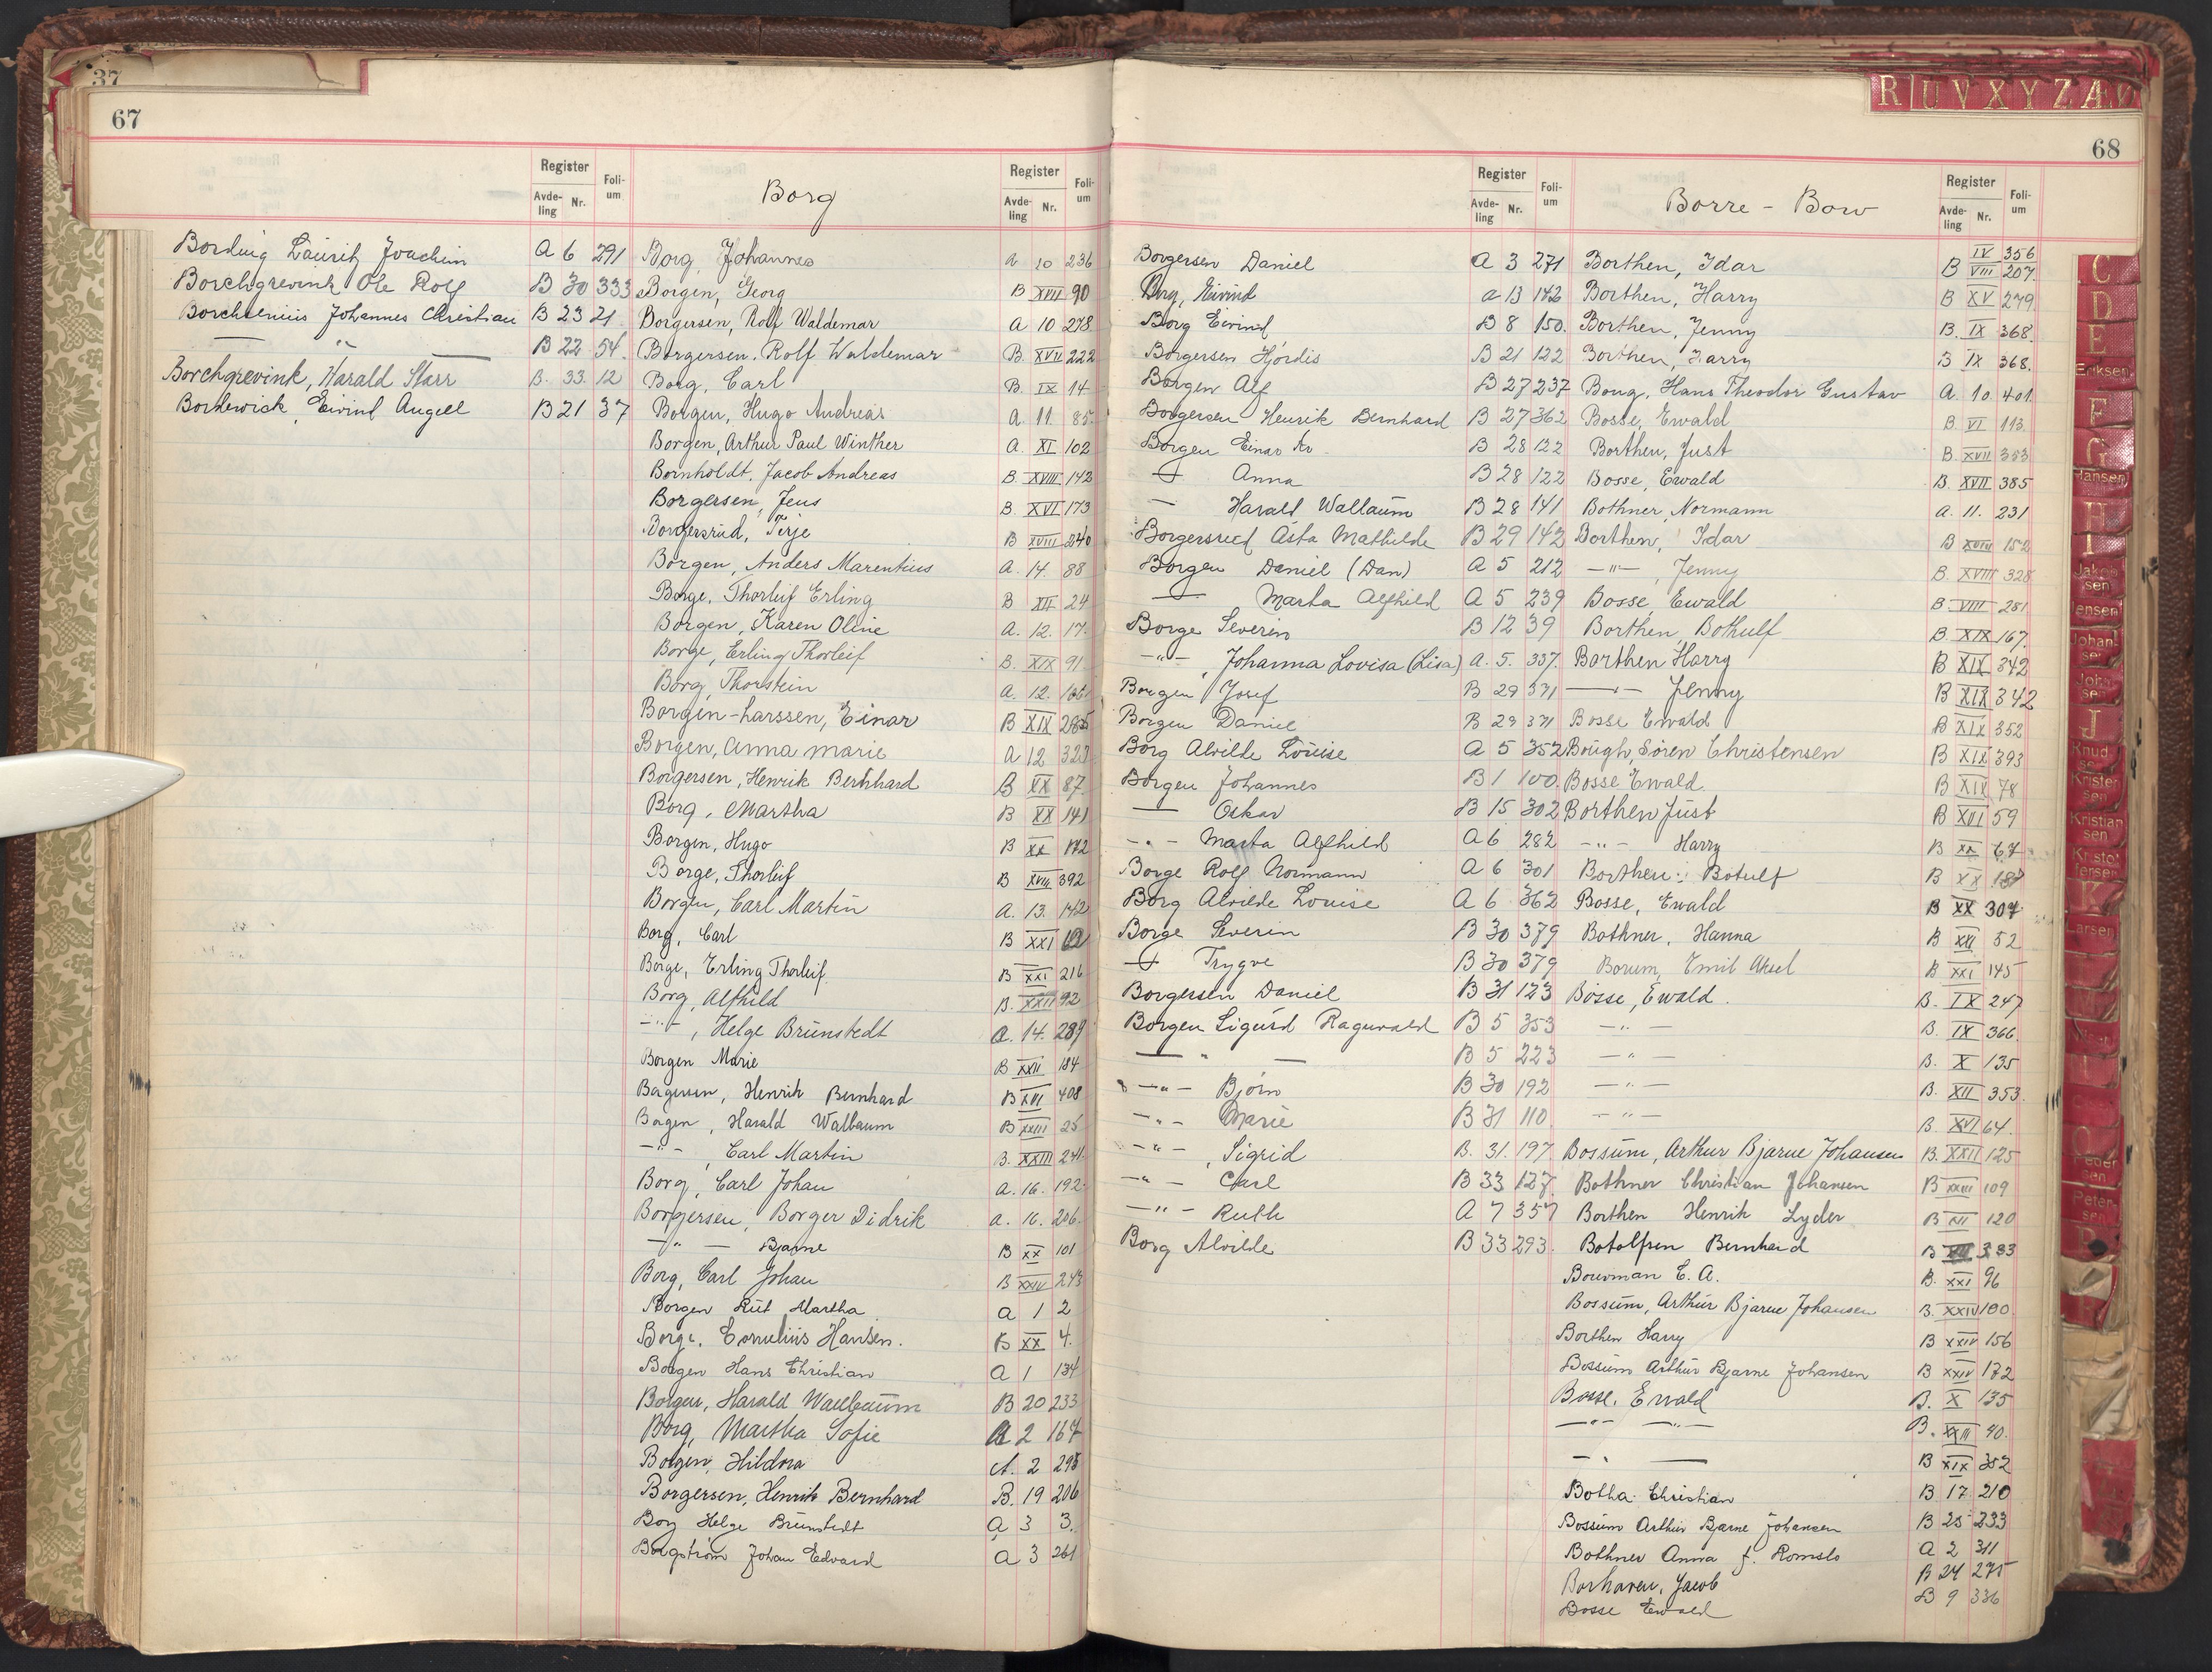 37
67
Register
Avde-ling Nr.
Foli-um
Bording Lauritz Joachim A 6 291
Borchgrevink Ole Rolf B 30 333
Borchsenius Johannes Christian B 23 21
— " — B 22 54.
Borchgrevink, Harald Starr B. 33. 12
Bordewick, Eivind Angell B 21 37
Borg
Register
Avde-ling Nr.
Foli-um
Borg, Johannes A 10 236
Borgen, Georg B XVII 90
Borgersen, Rolf Waldemar A 10 278
Borgersen, Rolf Waldemar B. XVII 222
Borg, Carl B. IX 14
Borgen, Hugo Andreas A. 11. 85.
Borgen, Arthur Paul Winther A. XI 102
Bornholdt, Jacob Andreas B. XVIII 142
Borgersen, Jens B. XVI 173
Borgersrud, Terje B XVIII 240
Borgen, Anders Marentius A. 14. 88
Borge, Thorleif Erling B XII 24
Borgen, Karen Oline A. 12. 17.
Borge, Erling Thorleif B. XIX 91
Borg, Thorstein A. 12.
Borgen-Larssen, Einar B XIX
Borgen, Anna Marie A 12 322
Borgersen, Henrik Bernhard B XX 87.
Borg, Martha B XX 141
Borgen, Hugo B XX 172
Borge, Thorleif B XVIII 392
Borgen, Carl Martin A. 13. 142
Borg, Carl B XXI 62
Borge, Erling Thorleif B XXI 216
Borg, Alfhild B. XXII 92
— " —, Helge Brünstedt A. 14. 289
Borgen Marie B XXII 184
Borgersen, Henrik Bernhard B XVI 408
Borgen, Harald Walbaum B XXIII 25
— " —, Carl Martin B. XXIII 241.
Borg, Carl Johan A. 16. 192.
Borgersen, Borger Didrik A. 16. 206.
— " — Bjarne B XX 101
Borg, Carl Johan B XXIV 243
Borgen Rut Martha A 1 2
Borge, Cornelius Hansen. B XX 4.
Borgen Hans Christian A 1 134
Borgen, Harald Wallbaum B 20 233
Borg, Martha Sofie A 2 167
Borgen, Hildora A. 2 295
Borgersen, Henrik Bernhard B. 19 206
Borg Helge Brünstedt A 3 3.
Borgstrøm Johan Edvard A 3 261
R U V X Y Z Æ Ø
68
Register
Avde-ling Nr.
Foli-um
Borgersen Daniel A 3 271
Borg, Eivind A 13 142
Borg Eivind B 8 150.
Borgersen Hjørdis B 21 122
Borgen Alf B 27 237
Borgersen Henrik Bernhard B 27 362
Borgen Einar Kr. B 28 122
— Anna B 28 122
— Harald Wallaum B 28 141
Borgersrud Asta Mathilde B 29 142
Borgen Daniel (Dan) A 5 212
— Marta Alfhild A 5 239
Borge Severin B 12 39
— " —, Johanna Lovisa (Lisa) A. 5. 337.
Borgen Josef B 29 371
Borgen Daniel B 29 371
Borg Alvilde Louise A 5 352
Borgen Johannes B 1 100.
— Oskar B 15 302
— " — Marta Alfhild A 6 282
Borge Rolf Normann A 6 301
Borg Alvilde Louise A 6 362
Borge Severin B 30 379
— Trygve B 30 379
Borgersen Daniel B 31 123
Borgen Sigurd Ragnvald B 5 353
— " — B 5 223
— " — Bjørn B 30 192
— " — Marie B 31 110
— " —, Sigrid B. 31. 197
— " — Carl B 33 127.
— " — Ruth A 7 357
Borg Alvilde B 33 293.
Borre – Bow
Register
Avde-ling Nr.
Foli-um
IV 356
Borthen, Idar B VIII 207.
Borthen, Harry B XV 279.
Borthen, Jenny B. IX 368.
Borthen, Harry B IX 368.
Boug, Hans Theodor Gustav A. 10. 401.
Bosse, Ewald B. VI 113.
Borthen, Just B. XVII 353
Bosse, Ewald B. XVII 385
Bothner, Normann A. 11. 231
Borthen, Idar B XVIII 152
— " —, Jenny B. XVIII 328
Bosse, Ewald B. VIII 281
Borthen, Bothulf B. XIX 167.
Borthen Harry B XIX 342
— " — Jenny B XIX 342
Bosse Ewald B XIX 352
Bough, Søren Christensen B XIX 393
Bosse Ewald B XIX 78
Borthen Just B XVI 59
— " — Harry B XX 67
Borthen: Botulf B XX 187
Bosse, Ewald B XX 307
Bothner, Hanna B XXI 52
Borum, Emil Aksel B XXI 145
Bosse, Ewald. B. IX 247
— " — B. IX 366.
— " — B. X 135
— " — B. XII 353.
— " — B. XVI 64.
Bossum, Arthur Bjarne Johansen B. XXII 125
Bothner Christian Johansen B XXIII 109
Borthen Henrik Lyder B XII 120
Botolfsen Bernhard B 383
Bouvman C. A. B. XXI 96
Bossum, Arthur Bjarne Johansen B. XXIV 100.
Borthen Harry B XXIV 156
Bossum Arthur Bjarne Johansen B XXIV 172
Bosse, Ewald B. X 135
— " — — " — B. XXIII 40.
— " — B XIX 352
Botha Christian B 17 210
Bossum Arthur Bjarne Johansen B 25 233
Bothner Anna f. Romslo A 2 311
Borhaven, Jacob B 24 275
Bosse Ewald B 9 336
C
D
E
Eriksen
F
G
Hansen
H
I
Jakobsen
Jensen
Johansen
Johnsen
J
Knudsen
Kristensen
Kristiansen
Kristoffersen
K
Larsen
L
O
Pedersen
Petersen
P